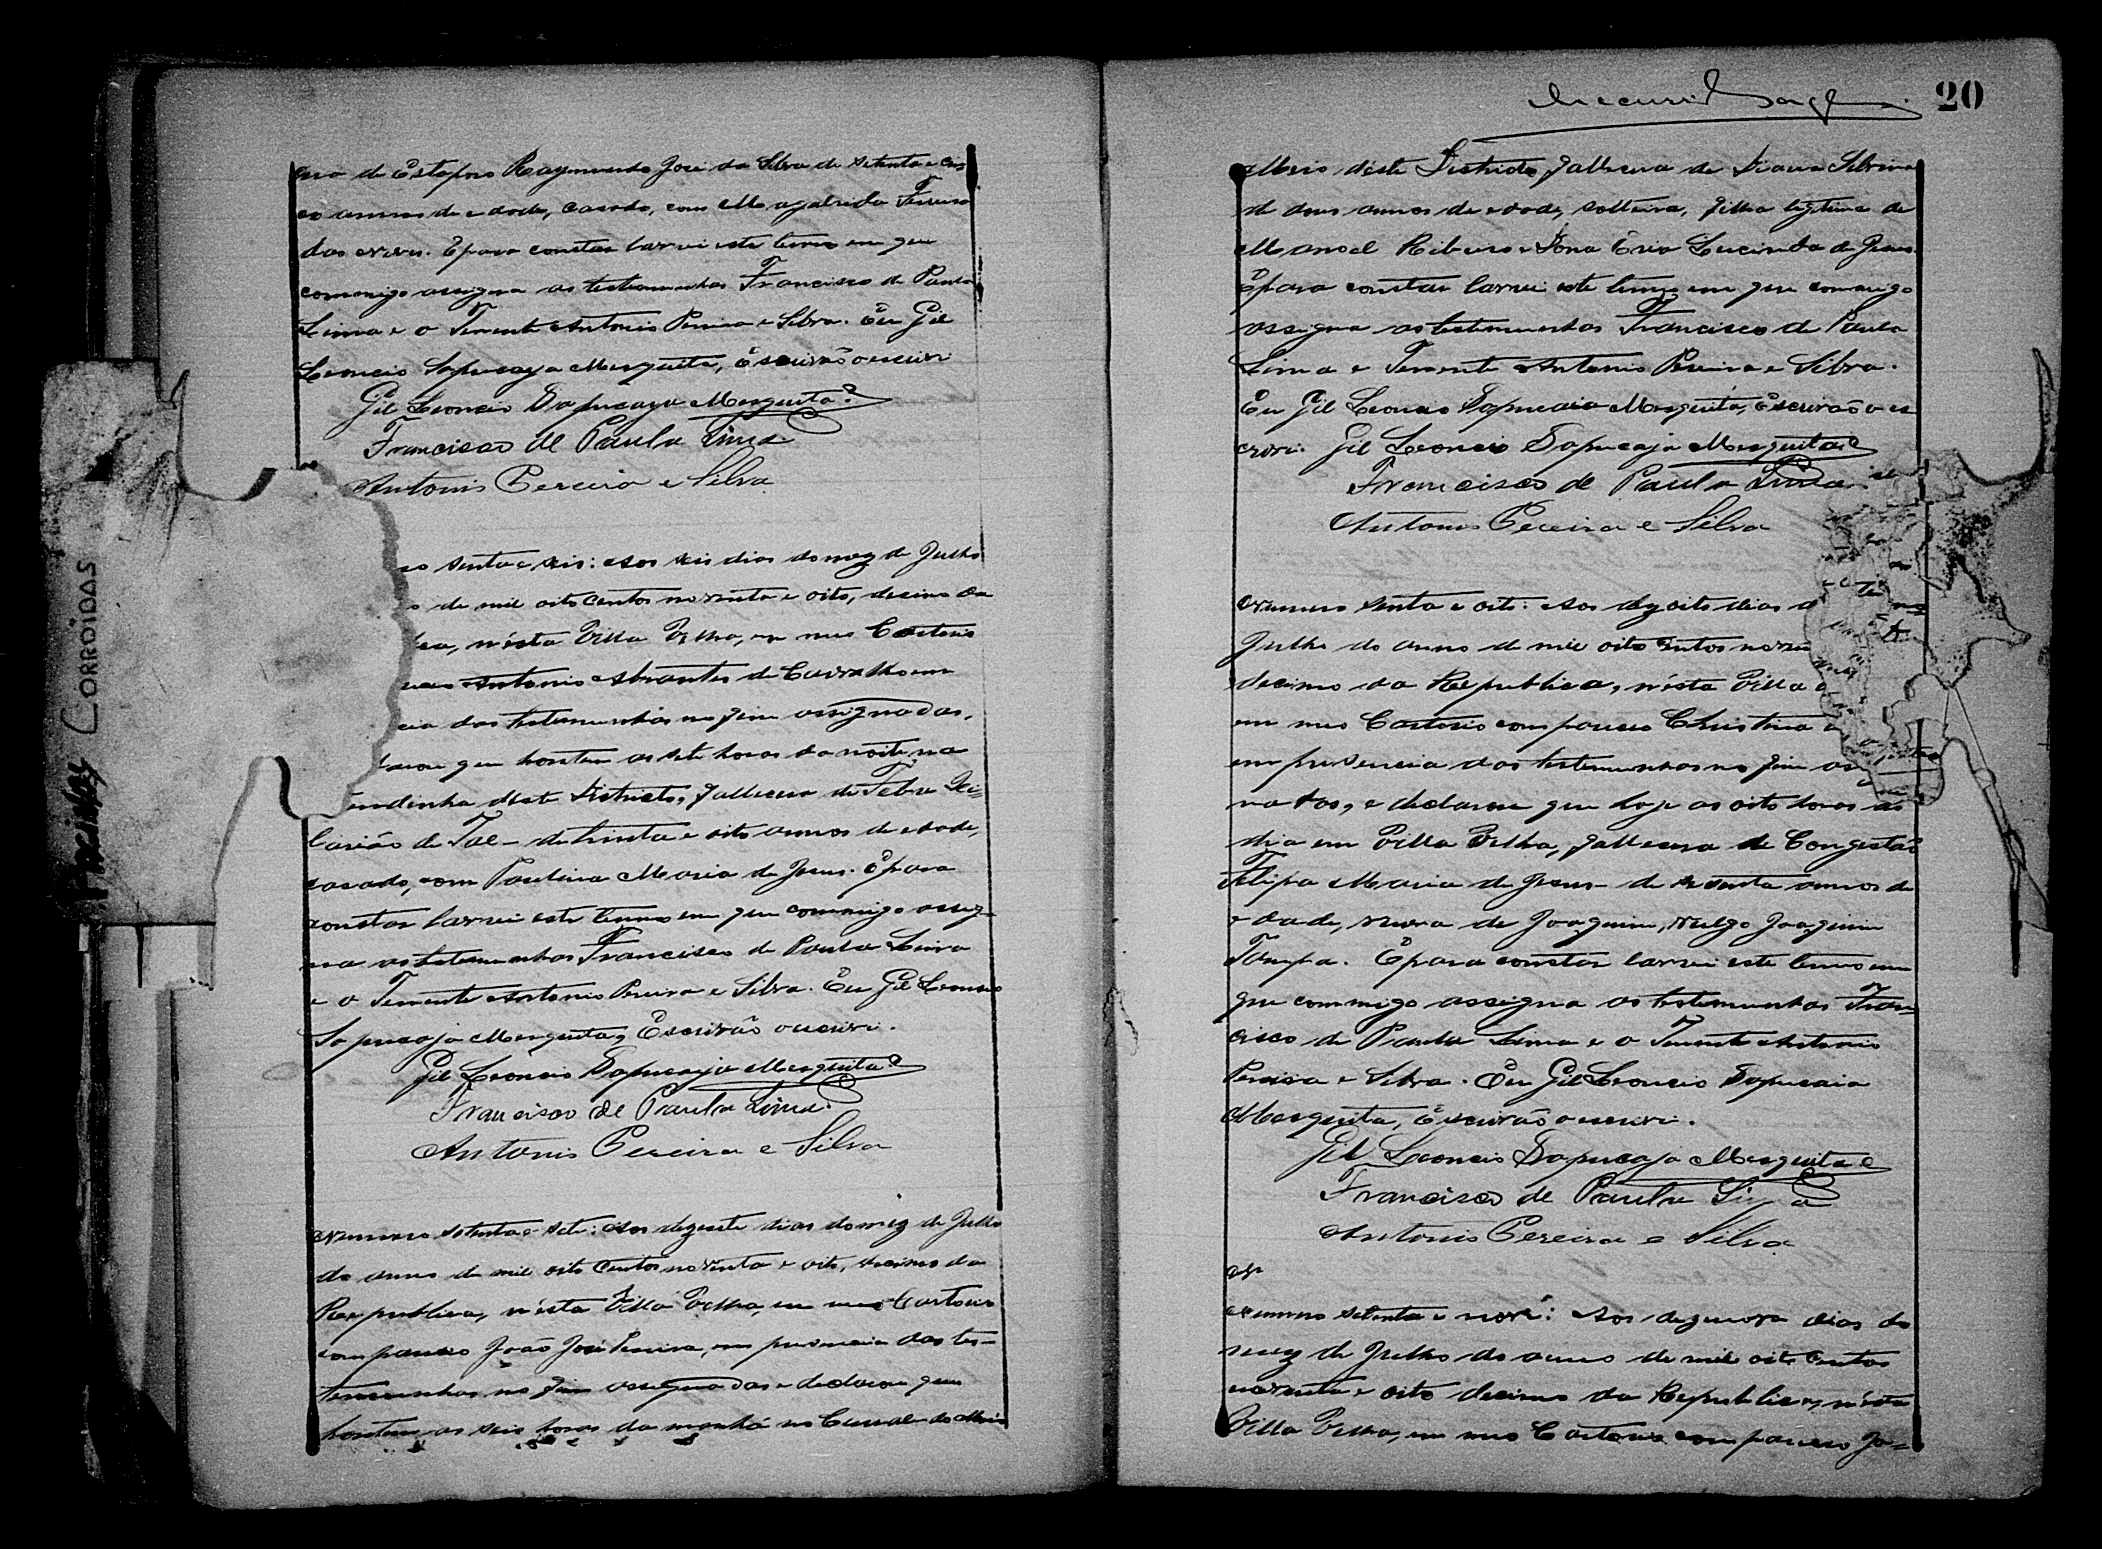 de Estupor Raymundo José da Silva de setenta e cin
co annos de edade, casado, com Magalrida Ferreira
das Neves. E para constar lavrei este termo em que
commigo assigna as testemunhas Francisco de Paula
Lima e o Tenente Antonio Pereira e Silva. Eu Gil
Leoncio Sapucaya Mesquita, Escrivão o escrivi
Gil Leoncio Sapucaya Mesquita
Francisco de Paula Lima
Antonio Pereira e Silva
CORROÍDAS
ro senta e seis: Aos seis dias do mez de Julho
o de mil oito centos noventa e oito, decimo da
ca, nésta Villa Velha, em meu Cartorio
ceu Antonio Abrantes de Carvalho em
cia das testemunhas no fim assignadas,
rou que hontem as sete horas da noite, na
endinha deste Districto, falleceu de Febre
de Tal - de trinta e oito annos de edade,
casado, com Paulina Maria de Jesus. E para
constar lavrei este termo em que commigo assig
na as testemunhas Francisco de Paula Lima
e o Tenente Antonio Pereira e Silva. Eu Gil Leoncio
Sapucaja Mesquita, Escrivão o escrivi.
Gil Leoncio Sapucaja Mesquita
Francisco de Paula Lima.
Antonio Pereira e Silva
Numero setenta e sete: Aos dezesete dias do mez de Julho
do anno de mil oito centos noventa e oito, decimo da
Republica, nésta Villa Velha, em meu Cartorio
compareceu João José Pereira, em presencia das tes-
temunhas no fim assignadas e declarou que
hontem as seis horas da manhã no Curral do Meio
20
deste Districto, falleceu de
de dous annos de edade, solteira, filha legitima de
Manoel Ribeiro e Dona Lucinda de Jesus.
E para constar lavrei este termo em que commigo
assigna as testemunhas Francisco de Paula
Lima e Tenente Antonio Pereira e Silva.
Eu Gil Leoncio Sapucaia Mesquita, Escrivão o es
crivi. Gil Leoncio Sapucaja Mesquita
Francisco de Paula Lima
Antonio Pereira e Silva
Numero senta e oito: Aos dezoito dias
Julho do anno de mil oito centos nove
decimo da Republica, nésta Villa
em meu Cartorio compareceu Christina
em presencia das testemunhas no fim assig
nadas, e declarou que hoje as oito horas do
dia em Villa Velha, falleceu de Congestão
Felipa Maria de Jesus - de setenta annos de
edade, viuva de Joaquim, vulgo Joaquim
E para constar lavrei este termo em
que commigo assigna as testemunhas Fran-
cisco de Paula Lima e o Tenente Antonio
Pereira e Silva. Eu Gil Leoncio Sapucaia
Mesquita, Escrivão o escrivi.
Gil Leoncio Sapucaja Mesquita
Francisco de Paula Lima
Antonio Pereira e Silva
Numero setenta e nove: Aos dezenove dias do
mez de Julho do anno de mil oito centos
noventa e oito decimo da Republica, nésta
Villa Velha, em meu Cartorio compareceu Jo-